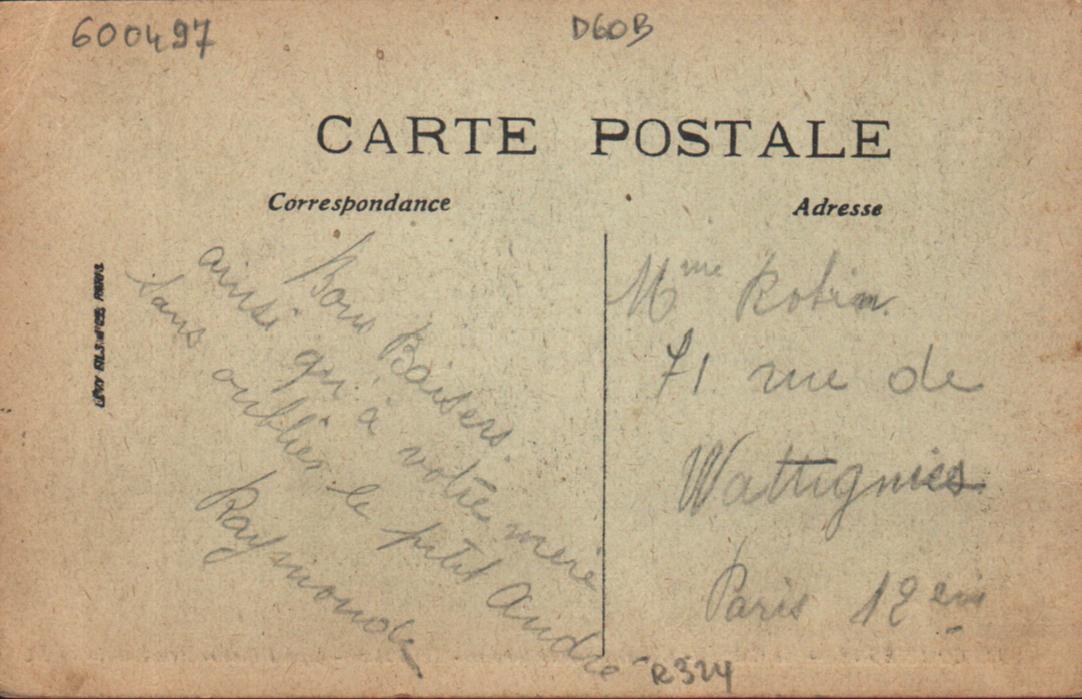 600497
D60B
CARTE POSTALE
Correspondance
Adresse
LÉVY FILS et Cie, PARIS
Bons Baisers.
ainsi qu'à votre mère
sans oublier le petit André
Raymonde
Mme Robin
71 rue de
Wattignies
Paris 12em
R324